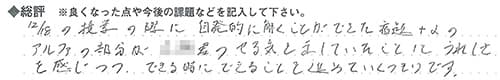 ◆総評 ※良くなった点や今後の課題などを記入して下さい。
12/8の授業の際に自発的に解くことができた宿題+αの
アルファの部分が 君のやる気を主していたことに、うれしさ
を感じつつ、できる時にできることを進めていくつもりです。